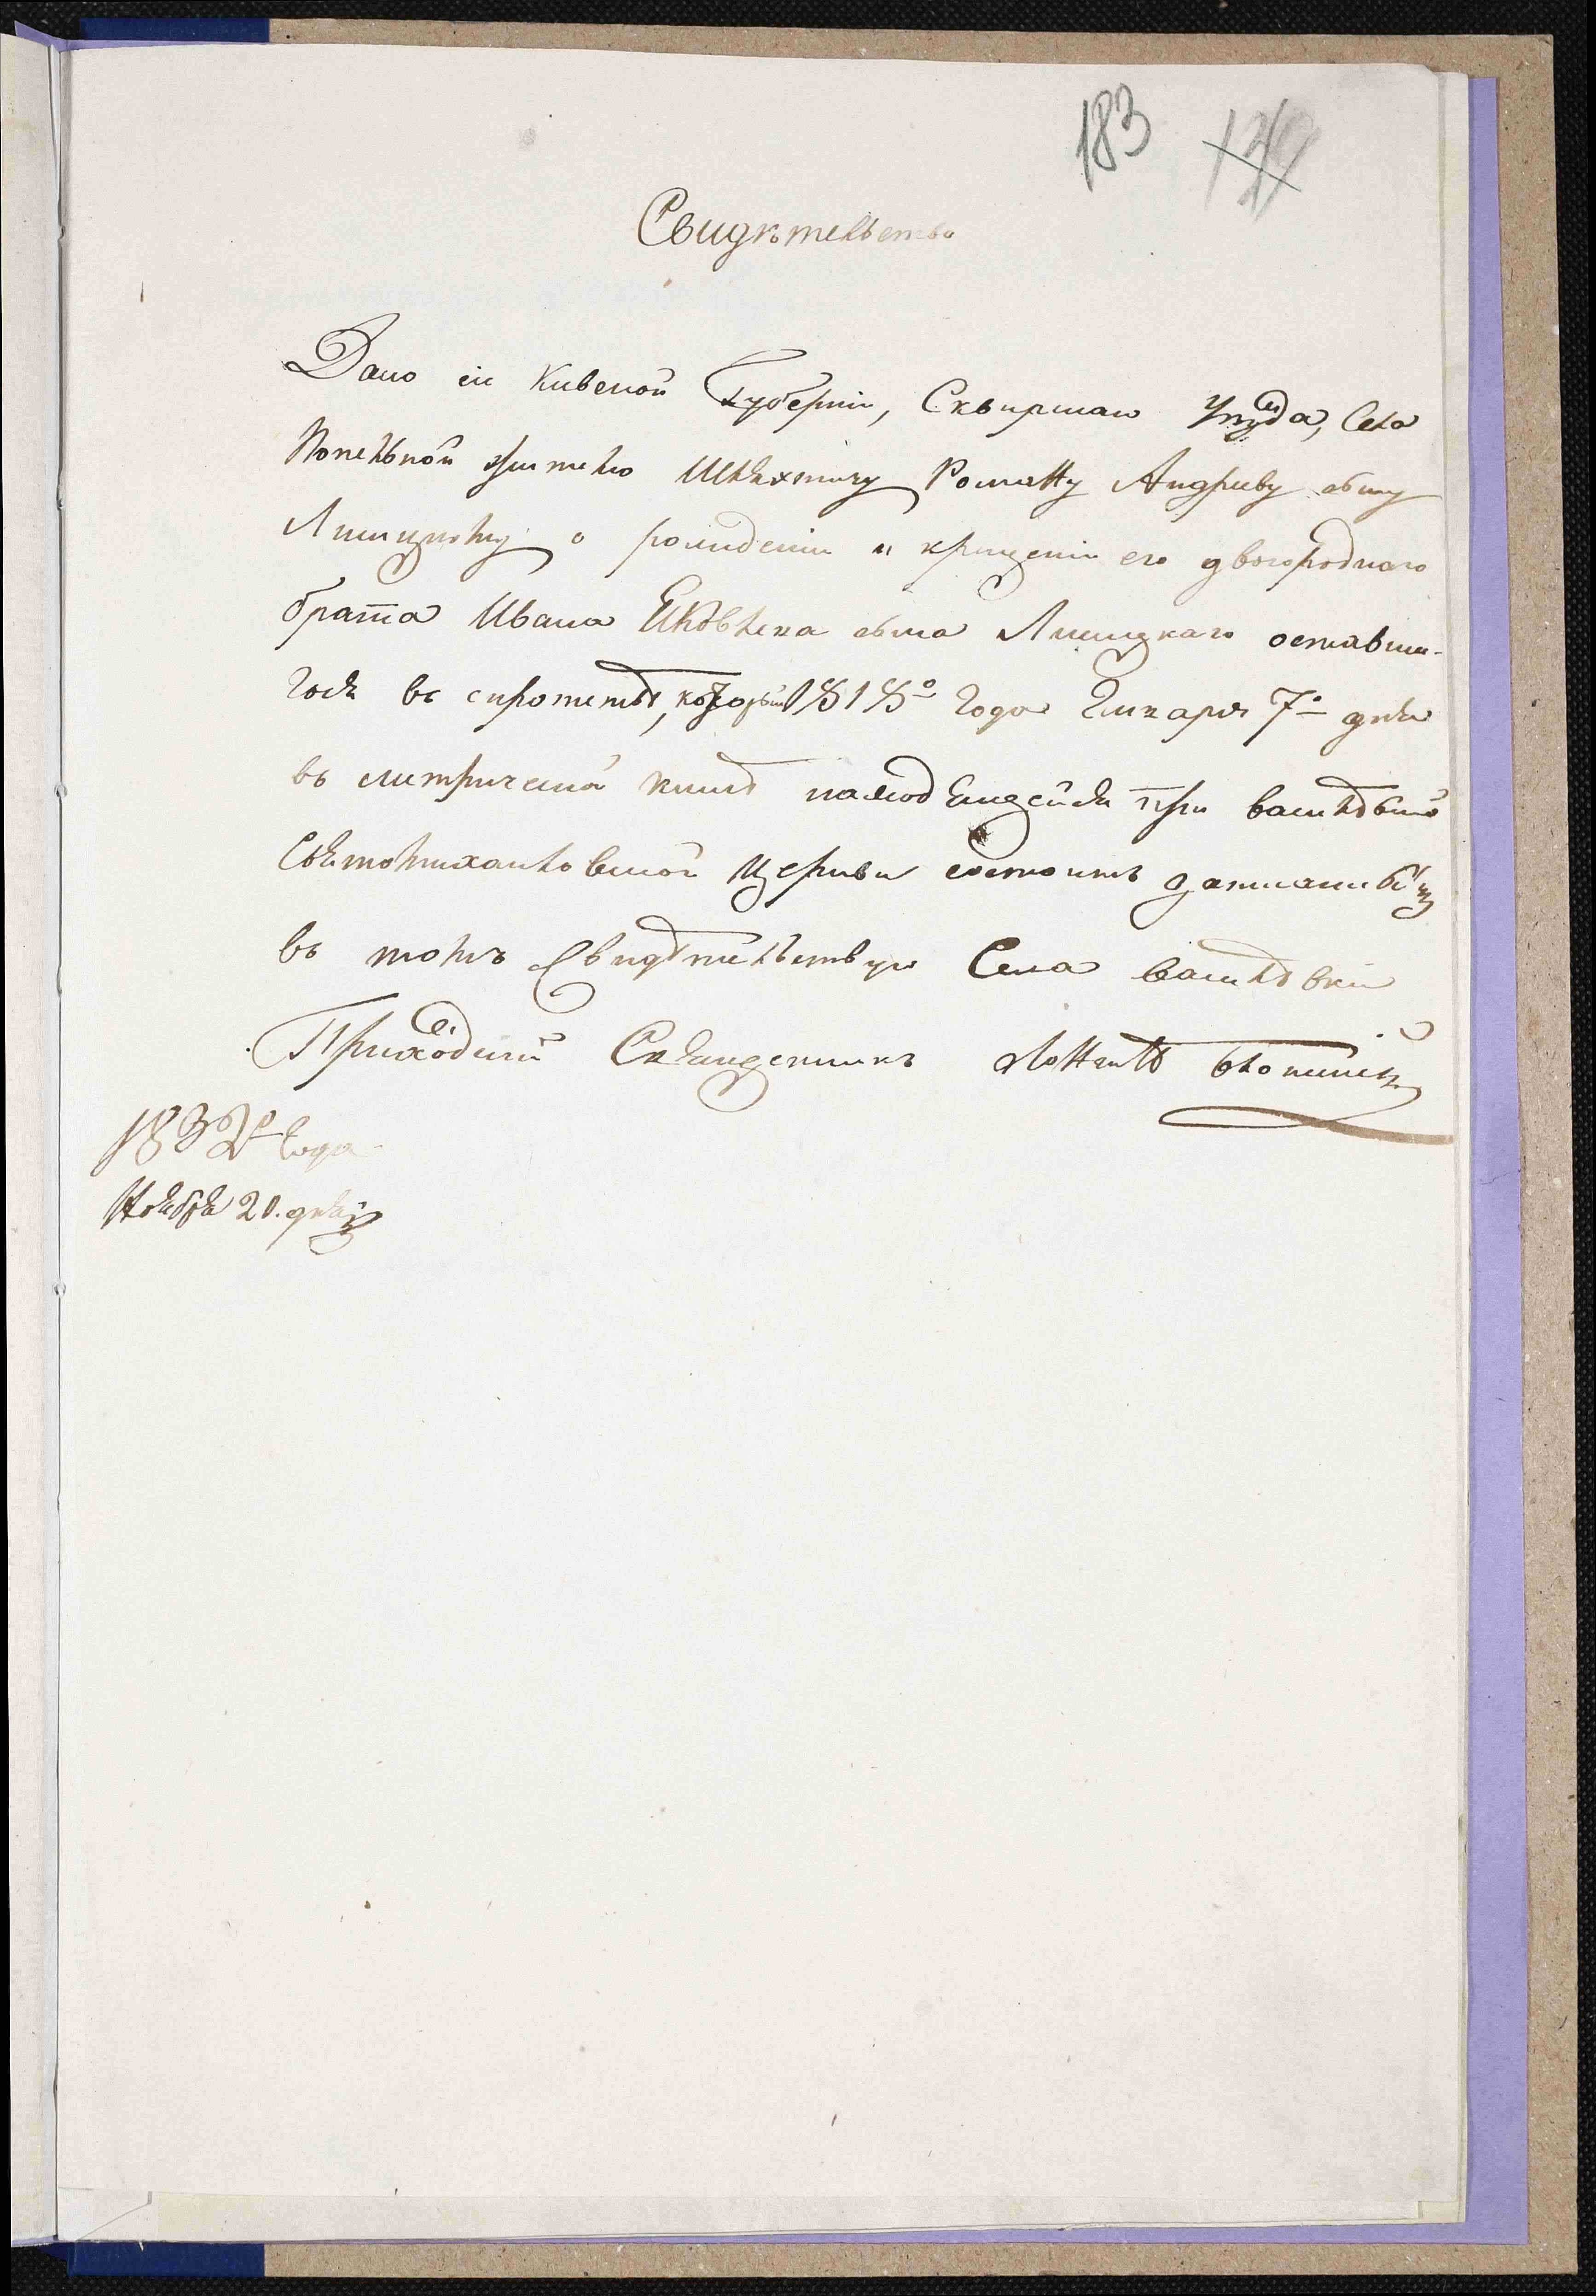 183 139
Свидѣтельство
Дано сіе Киевской Губерніи, Сквирскаго Уезда, Села
Попельной жителю Шляхтичу Роману Андрееву сыну
Липицкому о рождении и крещеніи его двоюроднаго
брата Ивана Яковлева сына Липицкаго оставша-
гося въ сиротствѣ, который 1815º года Генваря 7º дня
въ метрической книгѣ находящейся при василѣвской
Святомихайловской Церкви состоитъ записанный
въ томъ Свидѣтельствую Села василѣвки
Приходский Священникъ
1832º года
Ноября 20. дня